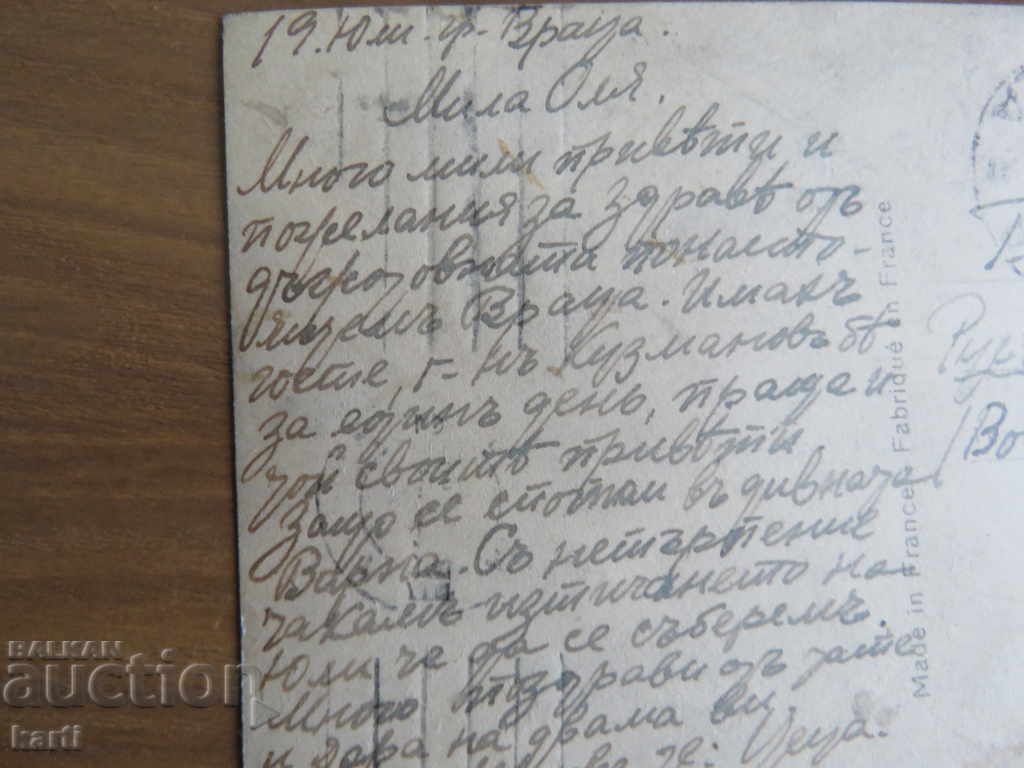 19. Юли. гр. Враца.
Мила Оля.
Много мили привѣти и
пожелания за здраве отъ
понасто-
Враца. Имахъ
гостие, г-нъ Кузмановъ бѣ
за единъ день, праща и
той своитѣ привѣти
Защо се въ дивната
Варна. Съ нетърпение
чакамъ изтичането на
Юли че да се съберемъ.
Много поздрави отъ
и на двама ви.
Made in France Fabriqué en France
BALKAN
auction
karti